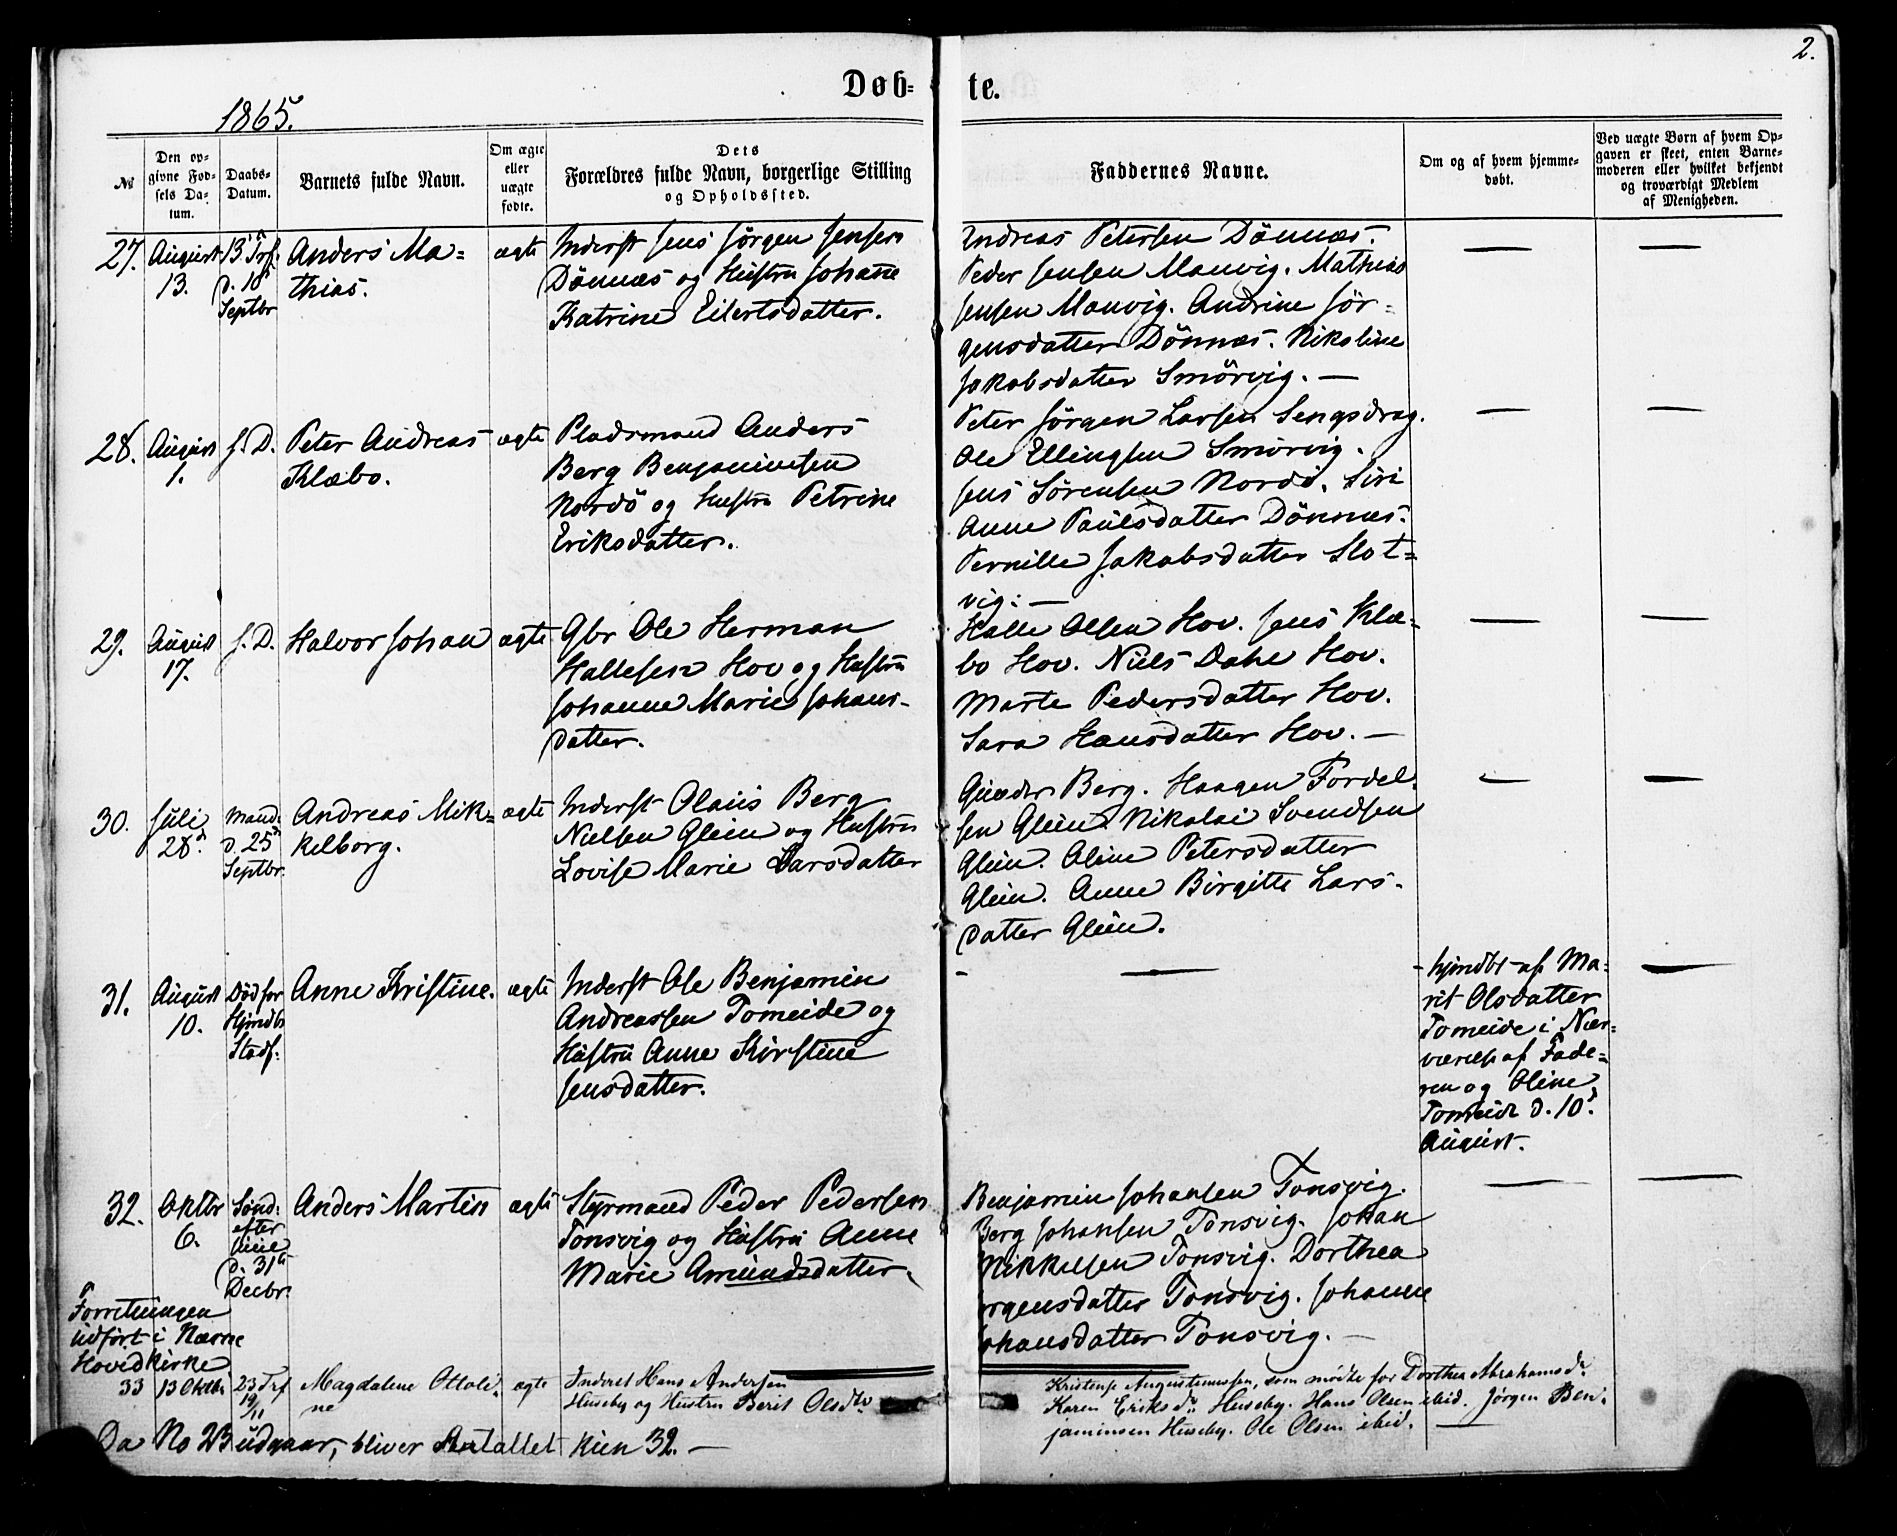 2.
Døb-te.
1865.
№
Den opgivne Fødsels Datum.
Daabs-Datum.
Barnets fulde Navn.
Om ægte eller uægte fødte.
Dets Forældres fulde Navn, borgerlige Stilling og Opholdssted.
Faddernes Navne.
Om og af hvem hjemmedøbt.
Ved uægte Børn af hvem Opgaven er skeet, enten Barnemoderen eller hvilket bekjendt og troværdigt Medlem af Menigheden.
27.
August
13.
13 Trf.
d. 10
Septbr
Anders Ma=
thias.
ægte
Inderst Jens Jørgen Jensen
Dönnæs og Hustru Johane
Katrine Eilertsdatter.
Andreas Petersen Dönnæs.
Peder Jensen Mauvig. Mathias
Jensen Mauvig. Andrine Jör=
gensdatter Dönnæs. Nikoline
Jakobsdatter Smörvig. —
28.
August
1.
s. D.
Peter Andreas
Klæbo.
ægte
Pladsmand Anders
Berg Benjaminsen
Nordö og Hustru Petrine
Eriksdatter.
Peter Jörgen Larsen Sengsdrag.
Ole Ellingsen Smörvig.
Jens Sörensen Nordö. Siri
Anne Paulsdatter Dönnæs.
Pernille Jakobsdatter Slot=
vig. —
29.
August
17.
s. D.
Halvor Johan
ægte
Gbr Ole Herman
Hallesen Hov og Hustru
Johanne Marie Johans-
datter.
Halle Olsen Hov. Jens Klæ=
bo Hov. Niels Dahl Hov.
Marte Pedersdatter Hov.
Sara Hansdatter Hov. —
30.
Juli
28d
Mand.
d. 25d
Septbr
Andreas Mik=
kelborg.
ægte
Inderst Olaus Berg
Nielsen Glein og Hustru
Lovise Marie Larsdatter
Gunder Berg. Haagen Fordel=
sen Glein. Nikolai Svendsen
Glein. Oline Petersdatter
Glein. Anne Birgitte Lars-
datter Glein.
31.
August
10.
Död før
Hjmdbs
Stadf.
Anne Kristine.
ægte
Inderst Ole Benjamin
Andreassen Tomeide og
Hustru Anne Kirstine
Jensdatter.
hjmdbt af Ma=
rit Olsdatter
Tomeide i Nær-
værelse af Fade=
ren og Oline
Tomeide d. 10d
August.
32.
Oktbr
6.
Sönd.
efter
Juul
d. 31te
Decbr.
Anders Martin
ægte
Styrmand Peder Pedersen
Tonsvig og Hustru Anne
Marie Amundsdatter.
Benjamin Johansen Tonsvig.
Berg Johansen Tonsvig. Johan
Mikkelsen Tonsvig. Dorthea
rgensdatter Tonsvig. Johanne
ohansdatter Tonsvig. —
Forretningen
udført i Næsne
Hovedkirke
33
13 Oktbr
23 Trf
19/11
Magdalene Ottoli-
ne
ægte
Inderst Hans Andersen
Huseby og Hustru Berit Olsdtr
Kristense Augustinussen, som mødte for Dorthea Abrahamsdr
Karen Eriksdr Huseby. Hans Olsen ibid. Jørgen Ben-
jaminsen Huseby. Ole Olsen ibid. —
Da No 23 udgaar, bliver Antallet kun 32. —